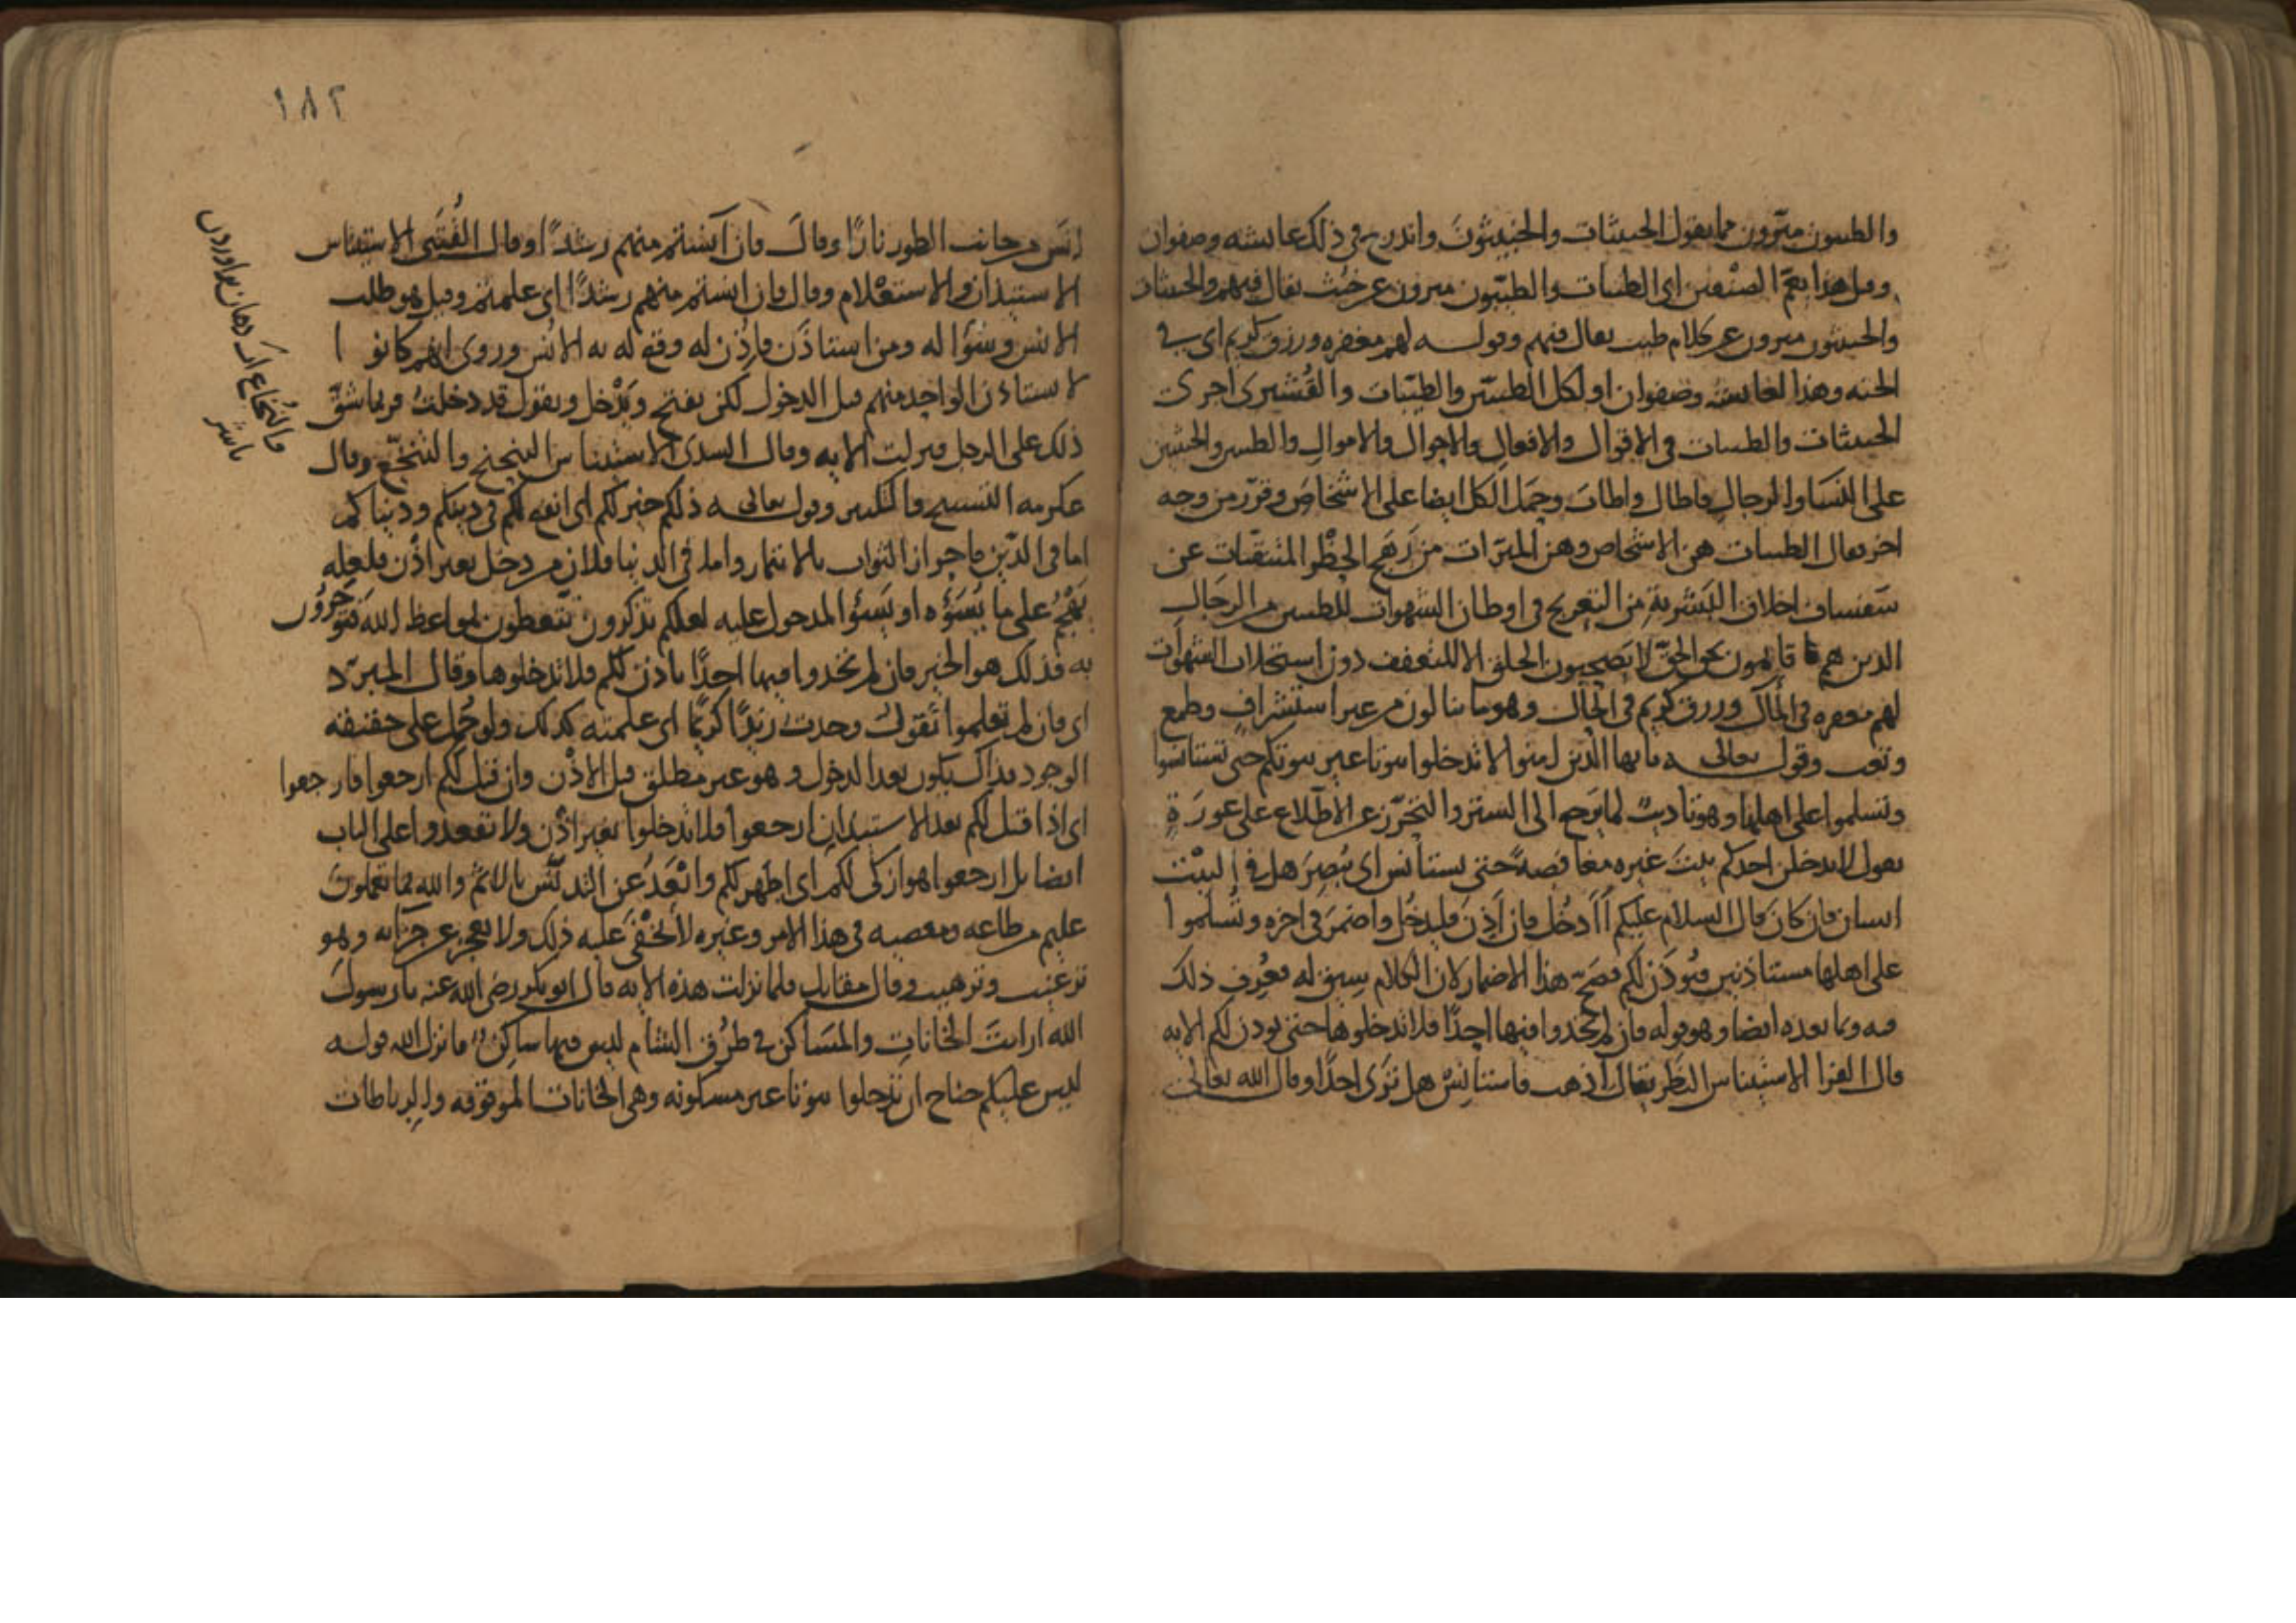 والطيبون مبرؤون مما يقول الخبيثات والخبيثون واندرج في ذلك عائشه وصفوان
وقيل هذا يعم الصنفين اى الطيبات والطيبون مبرون عن خبث يقال فيهم والخبيثات
والخبيثون مبرون عن كلام طيب يقال فيهم وقوله لهم مغفره ورزق كريم اى في
الجنه وهذا لعائشه وصفوان او لكل الطيبين والطيبات والقشيرى اجرى
الخبيثات والطيبات فى الاقوال والافعال والاحوال والاموال والطيبين والخبيثين
على النساء والرجال فاطال واطاب وحمل الكل ايضا على الاشخاص وقرر من وجه
اخر فقال الطيبات هن الاشخاص وهن المبرات من رهج الحظر المتنقيات عن
سفساف اخلاق البشرية من التعريج فى اوطان الشهوات للطيبين من الرجال
الذين هم قايمون بحق الحق لا يصحبون الخلق الا للتعفف دون استحلاب الشهوات
لهم مغفره فى المآل ورزق كريم فى الحال وهو ما ينالون من غير استشراف وطمع
وتعب وقوله تعالى يا يها الذين امنوا لا تدخلوا بيوتا غير بيوتكم حتى تستانسوا
وتسلموا على اهلها وهو تاديب لما يرجع الى الستر والتحرز عن الاطلاع على عورة
يقول لا يدخلن احدكم بيت غيره مغافصة حتى يستانس اى يبصر هل في البيت
انسان فان كان قال السلام عليكم أأدخل فان أذن فليدخل واضمر فى اخره وتسلموا
على اهلها مستاذنين فيوذن لكم فصح هذا الاضمار لان الكلام سيق له فعرف ذلك
به وبما بعده ايضا وهو قوله فان لم تجدوا فيها احدا فلا تدخلوها حتى يوذن لكم الايه
قال الفرا الاستيناس النظر يقال اذهب فاستانس هل ترى احدا وقال الله تعالى
١٨٢
انس من جانب الطور نارا وقال فان آنستم منهم رشدا وقال القتبى الاستيناس
الاستيذان والاستعلام وقال فان انستم منهم رشدا اى علمتم وقيل هو طلب
الانس وسؤاله ومن استاذن فاذن له وقع له به الانس وروى انهم كانوا
لا يستاذن الواحد منهم قبل الدخول لكن يفتح ويدخل ويقول قد دخلت فربما شق
ذلك على الرجل فنزلت الايه وقال السدى الاستيناس التنحنح والتنخع وقال
عكرمه التسبيح والتكبير وقوله تعالى ذلكم خير لكم اى انفع لكم فى دينكم ودنياكم
اما فى الدين فاحراز الثواب بالايتمار واما فى الدنيا فلان من دخل بغير اذن فلعله
يهجم على ما يسؤه او يسؤ المدخول عليه لعلكم تذكرون تتعظون لمواعظ الله فتؤجرون
به فذلك هو الخير فان لم تجدوا فيها احدا ياذن لكم فلا تدخلوها وقال المبرد
اى فان لم تعلموا تقول وجدت زيدا كريما اى علمته كذلك ولو حمل على حقيقته
الوجود فذاك يكون بعد الدخول وهو غير مطلق قبل الاذن وان قيل لكم ارجعوا فارجعوا
اى اذا قيل لكم بعد الاستيذان ارجعوا فلا تدخلوا بغير اذن ولا تقعدوا على الباب
ايضا بل ارجعوا هو ازكى لكم اى اطهر لكم وابعد عن التدنس بالاثم والله بما تعملون
عليم من طاعه ومعصيه فى هذا الامر وغيره لا يخفى عليه ذلك ولا يعجز عن جزائه وهو
ترغيب وترهيب وقال مقاتل فلما نزلت هذه الايه قال ابو بكر رضى الله عنه يا رسول
الله ارايت الخانات والمساكن في طرق الشام ليس فيها ساكن فانزل الله قوله
ليس عليكم جناح ان تدخلوا بيوتا غير مسكونه وهى الخانات الموقوفه والرباطات